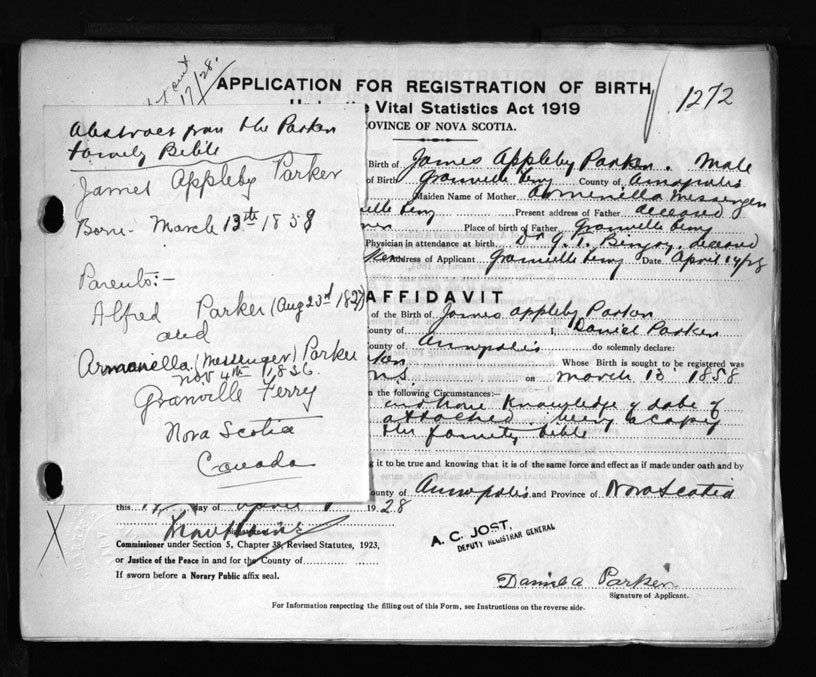 17/28.
APPLICATION FOR REGISTRATION OF BIRTH
1272
Vital Statistics Act 1919
PROVINCE OF NOVA SCOTIA.
Abstract from the Parker
family Bible
James Appleby Parker
Born - March 13th 1858
Parents:-
Alfred Parker (Aug 23rd
and
(Messenger) Parker
Nov 4th 1836.
Granville Ferry
Nova Scotia
Canada
Birth of James Appleby Parker. Male
of Birth Granville Ferry County of Annapolis
Maiden Name of Mother Messenger
Ferry Present address of Father deceased
Place of birth of Father Granville Ferry
Physician in attendance at birth Dr deceased
Address of Applicant Granville Ferry Date April 14/28
AFFIDAVIT
of the Birth of James Appleby Parker
County of I, Daniel Parker
County of Annapolis do solemnly declare:
Whose Birth is sought to be registered was
N.S. on March 13 1858
n the following Circumstances:—
knowledge of date of
attached being a copy
the family bible
g it to be true and knowing that it is of the same force and effect as if made under oath and by
County of Annapolis and Province of Nova Scotia
this day of April 1928
Commissioner under Section 5, Chapter 38, Revised Statutes, 1923,
or Justice of the Peace in and for the County of
If sworn before a Norary Public affix seal.
A. C. JOST,
DEPUTY REGISTRAR GENERAL
Parker
Signature of Applicant.
For Information respecting the filling out of this Form, see Instructions on the reverse side.